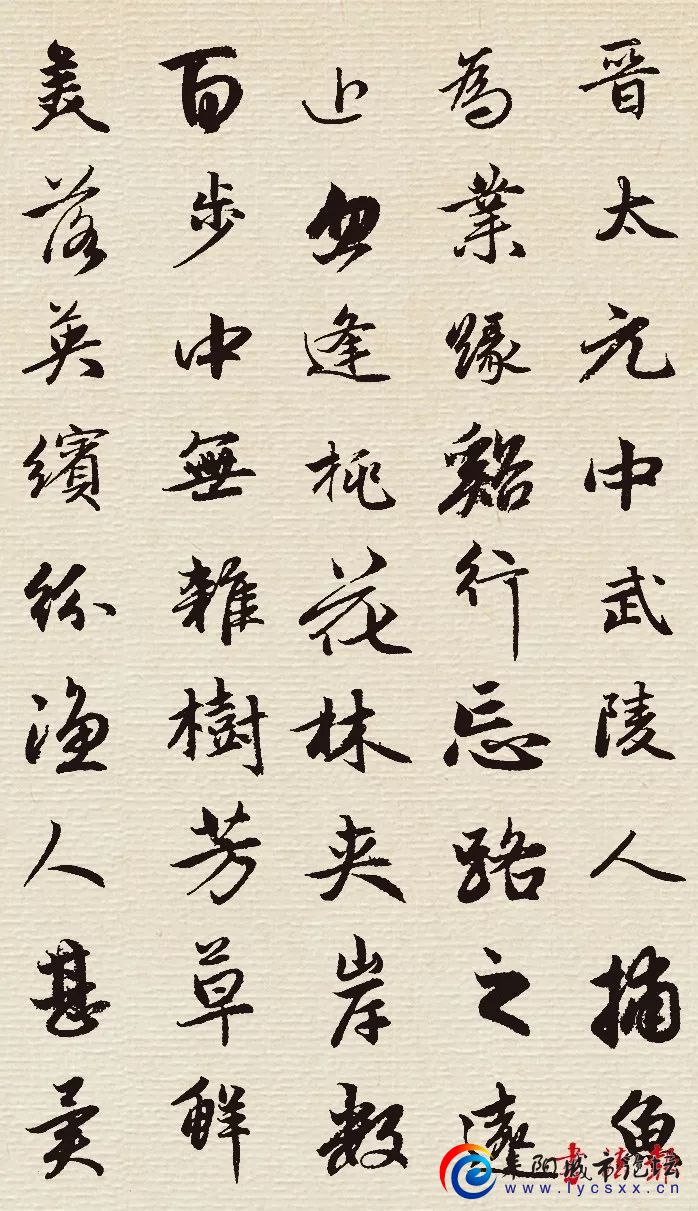 晋太元中武陵人捕魚
為業緣谿行忘路之遠
近忽逢桃花林夾岸數
百步中無雜樹芳草鮮
美落英繽紛漁人甚異
www.lycsxx.cn